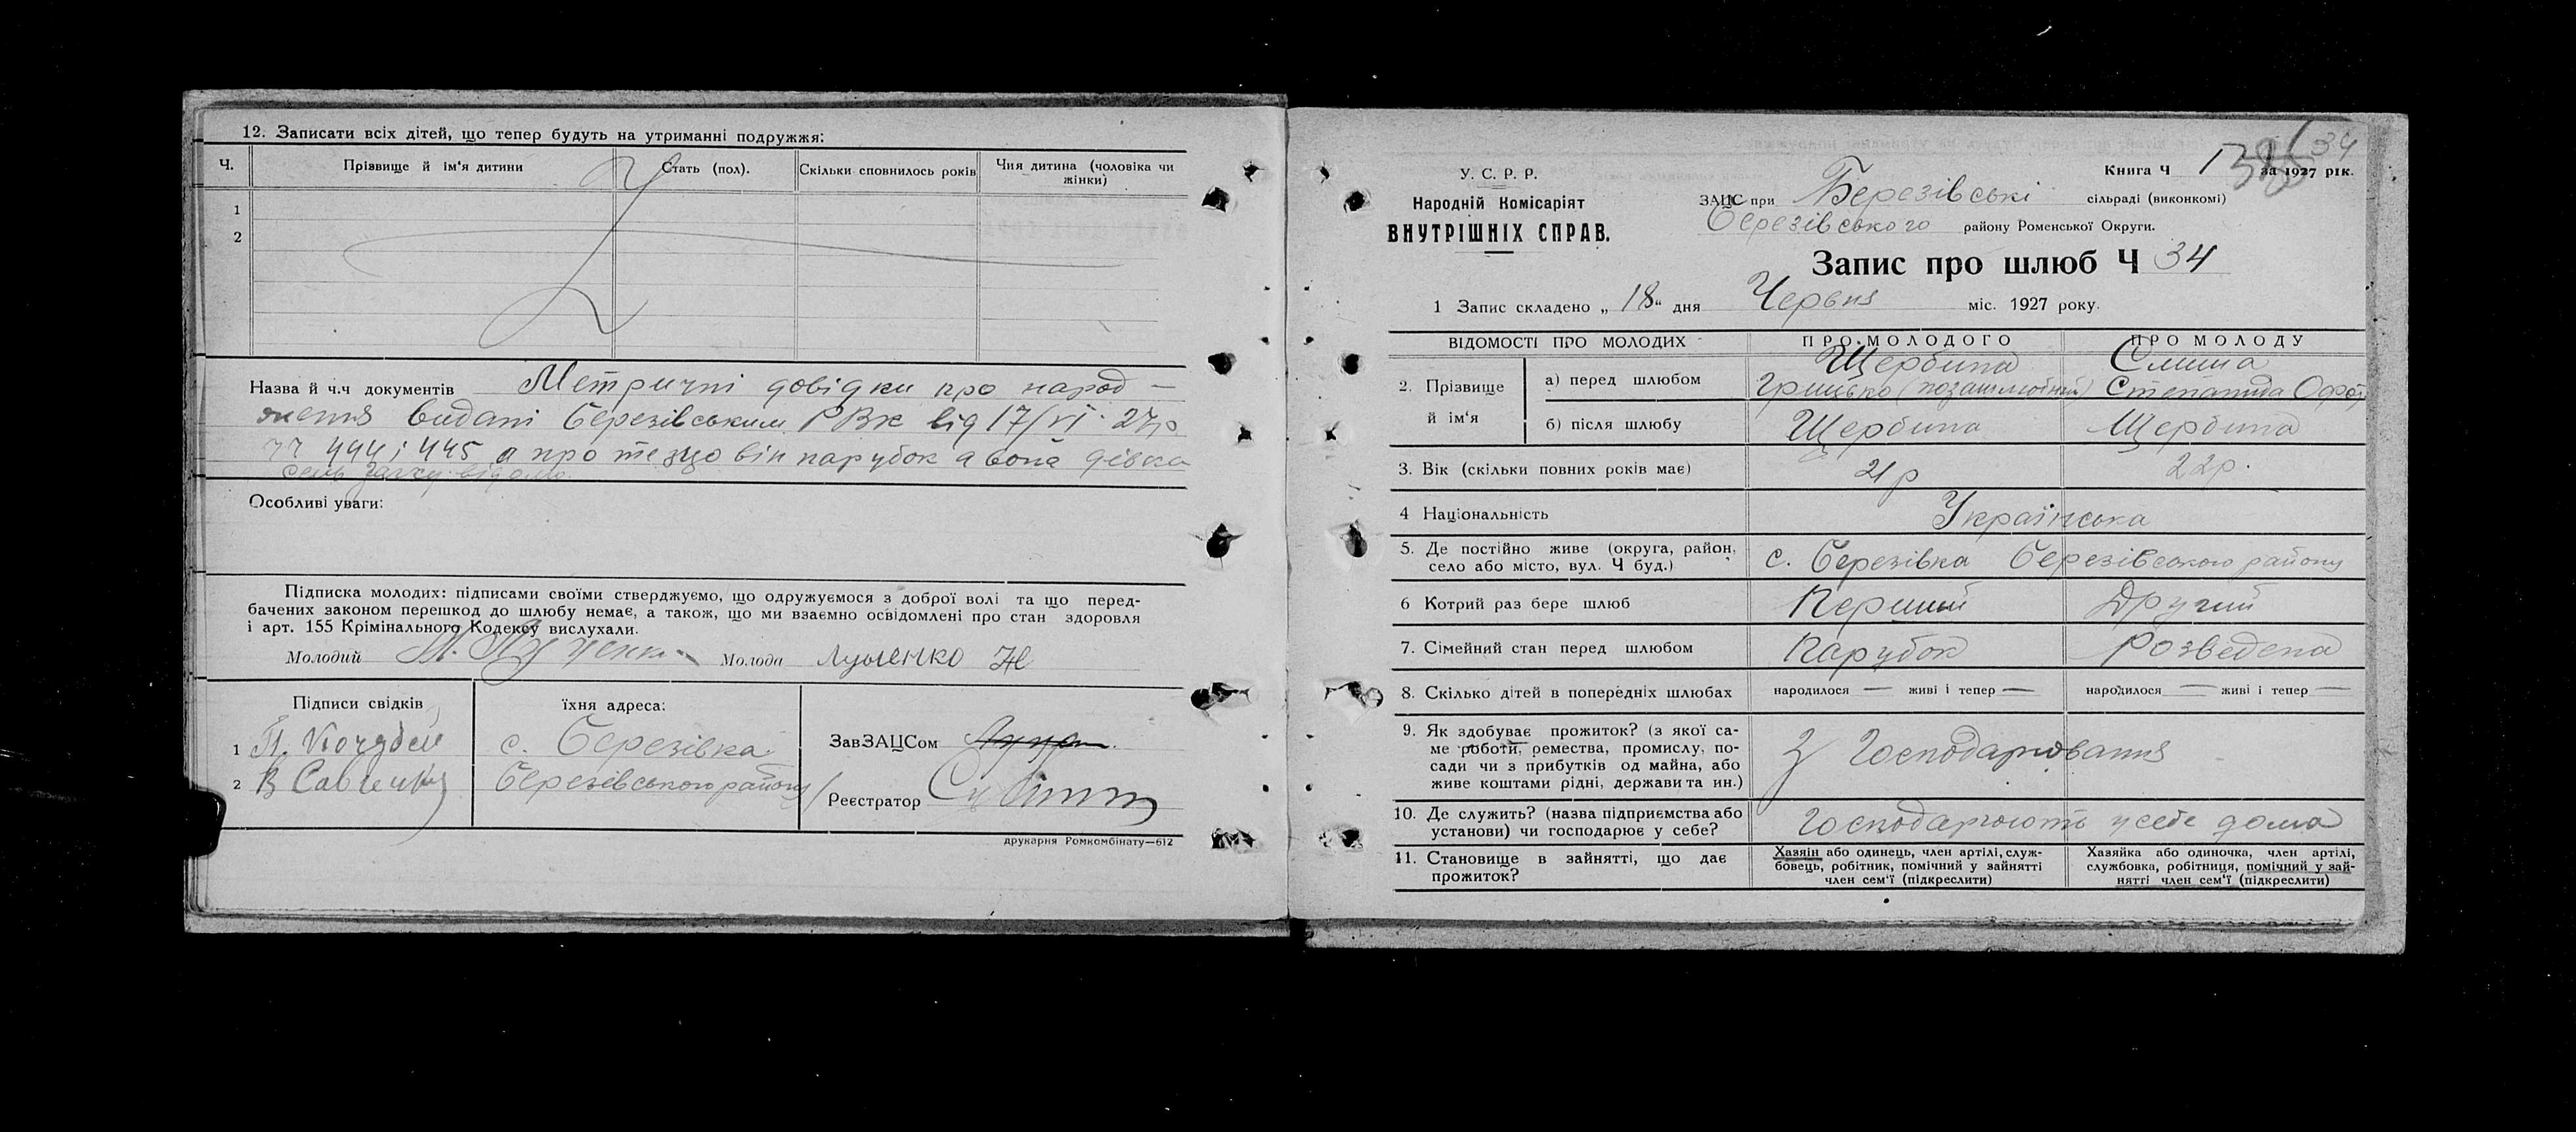 12. Записати всіх дітей, що тепер будуть на утриманні подружжя:
Ч. Прізвище й ім'я дитини Стать (пол). Скільки сповнилось років Чия дитина (чоловіка чи жінки)
1
2
Назва й ч.ч документів Метричні довідки про народ-
ження видані Березівським РВК від 17/VI 27р
444 і 445 а про те що він парубок а вона дівка
відомо
Особливі уваги:
Підписка молодих: підписами своїми стверджуємо, що одружуємося з доброї волі та що перед-
бачених законом перешкод до шлюбу немає, а також, що ми взаємно освідомлені про стан здоровля
і арт. 155 Крімінального Кодексу вислухали.
Молодий М. Луценко Молода Луценко Н
Підписи свідків їхня адреса:
1 П. Кочубей с. Березівка ЗавЗАЦСом
2 В Савченко Березівського району Реєстратор
друкарня Ромкомбінату—612
У. С. Р. Р.
Народній Комісаріят
ВНУТРІШНІХ СПРАВ.
34
Книга Ч 1 за 1927 рік.
ЗАЦС при Березівські сільраді (виконкомі)
Березівського району Роменської Округи.
Запис про шлюб Ч 34
1 Запис складено „18" дня Червня міс. 1927 року.
ВІДОМОСТІ ПРО МОЛОДИХ ПРО МОЛОДОГО ПРО МОЛОДУ
2. Прізвище й ім'я а) перед шлюбом Щербина Грицько (позашлюбний) Слиша Степанида
б) після шлюбу Щербина Щербина
3. Вік (скільки повних років має) 21р 22р.
4 Національність Українська
5. Де постійно живе (округа, район,
село або місто, вул. Ч буд.) с. Березівка Березівського району
6 Котрий раз бере шлюб Перший Другий
7. Сімейний стан перед шлюбом Парубок Розведена
8. Скілько дітей в попередніх шлюбах народилося — живі і тепер — народилося — живі і тепер —
9. Як здобуває прожиток? (з якої са-
ме роботи, ремества, промислу, по-
сади чи з прибутків од майна, або
живе коштами рідні, держави та ин.) З Господарювання
10. Де служить? (назва підприємства або
установи) чи господарює у себе? Господарюють у себе дома
11. Становище в зайнятті, що дає
прожиток?
Хазяін або одинець, член артілі, служ-
бовець, робітник, помічний у зайнятті
член сем'ї (підкреслити)
Хазяйка або одиночка, член артілі,
службовка, робітниця, помічний у зай-
нятті член сем'ї (підкреслити)